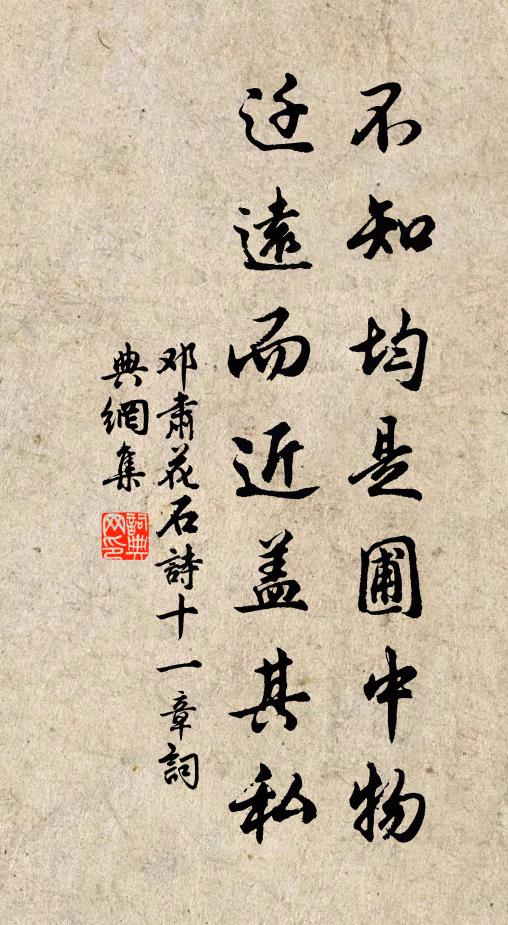 不知均是圃中物
迁遠而近盖其私
邓肃花石詩十一章詞
典網集
詞典
网印